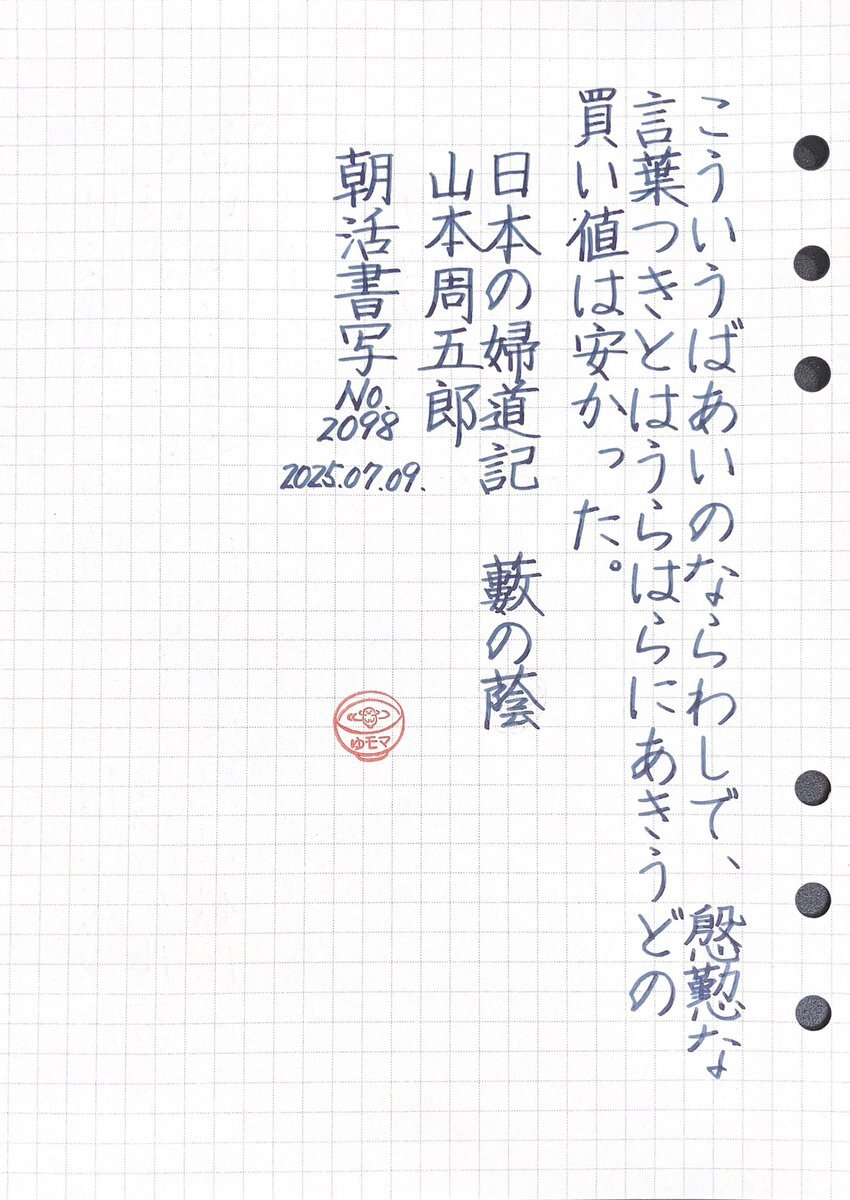 こういうばあいのならわしで、慇懃な
言葉つきとはうらはらにあきうどの
買い値は安かった。
日本の婦道記　藪の蔭
山本周五郎
朝活書写
No.
2098
2025.07.09.
ゆモマ